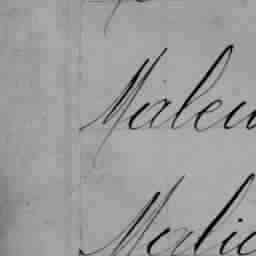 Maleu
Malic